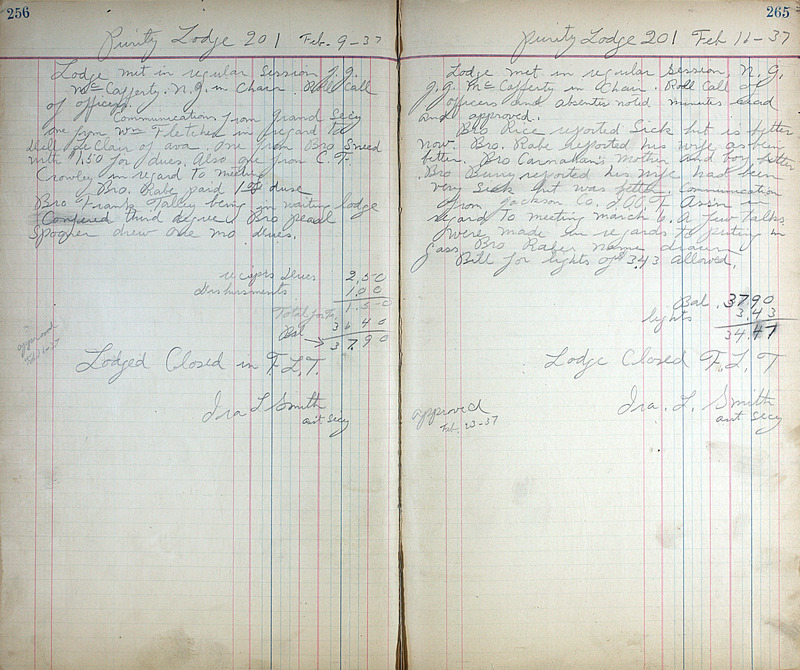 256
Purity Lodge 201 Feb. 9-37
Lodge met in regular Session J.J.
McCafferty. N.G in Chair. Roll Call
of officers.
Communications from Grand Secy
one from Wm Fletcher in regard to
Dell DeClair of ava. one from Bro Sneed
with 1.50 for dues. Also one from C.F.
Crowley in regard to meeting
Bro. Rabe paid 1.00 duse
Bro Frank Talley being in waiting lodge
Confered third degree. Bro pearl
Spooner drew one mo dues.
recipts Dues 2.50
disbursments 1.00
1.50
Total for To. 36 40
Bal → 37.90
approved
Feb 16-37
Lodged Closed in F.L.T.
Ira L Smith
ast Secy
265
Purity Lodge 201 Feb 16-37
Lodge met in regular Session, N.G.
J.J. McCafferty in Chair. Roll Call of
officers and absentes noted minutes read
and approved.
Bro Rice reported Sick but is better
now. Bro. Rabe reported his wife as been
better. Bro Carnahan's mother and boy better
. Bro Burry reported his wife had been
very Sick but was better. Communication
from Jackson Co. I.O.O.F Ass'n in
regard to meeting march 6. A few talks
were made in regards to puting in
gass Bro Raber name drawn
Bill for lights of $3.43 allowed.
Bal. 37.90
lights 3.43
34.47
Lodge Closed F. L. T
Ira. L. Smith
ast Secy
approved
Feb. 23-37